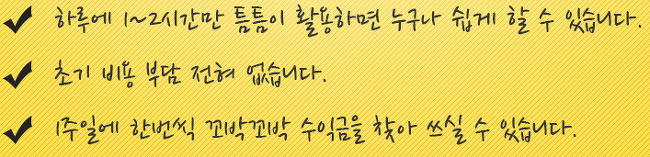 하루에 1~2시간만 틈틈이 활용하면 누구나 쉽게 할 수 있습니다.
초기 비용 부담 전혀 없습니다.
1주일에 한번씩 꼬박꼬박 수익금을 찾아 쓰실 수 있습니다.